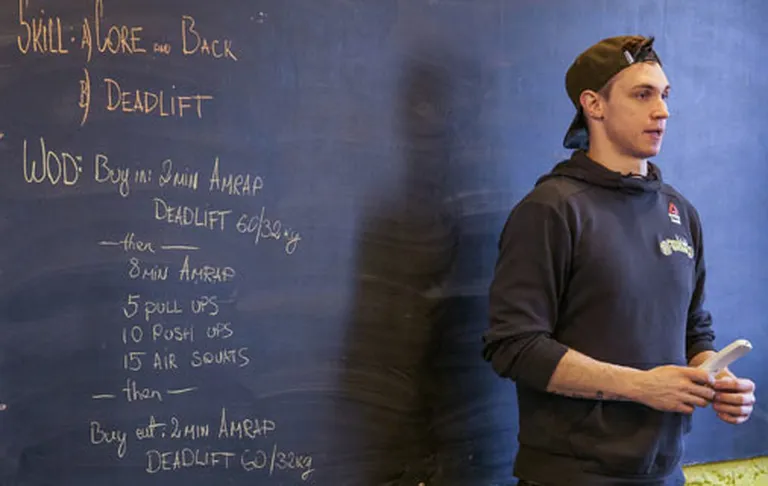 SKILL: A) CORE AND BACK
B) DEADLIFT
WOD: Buy in: 2 MIN AMRAP
DEADLIFT 60/32kg
— then —
8 MIN AMRAP
5 PULL UPS
10 PUSH UPS
15 AIR SQUATS
— then —
Buy out: 2 MIN AMRAP
DEADLIFT 60/32kg